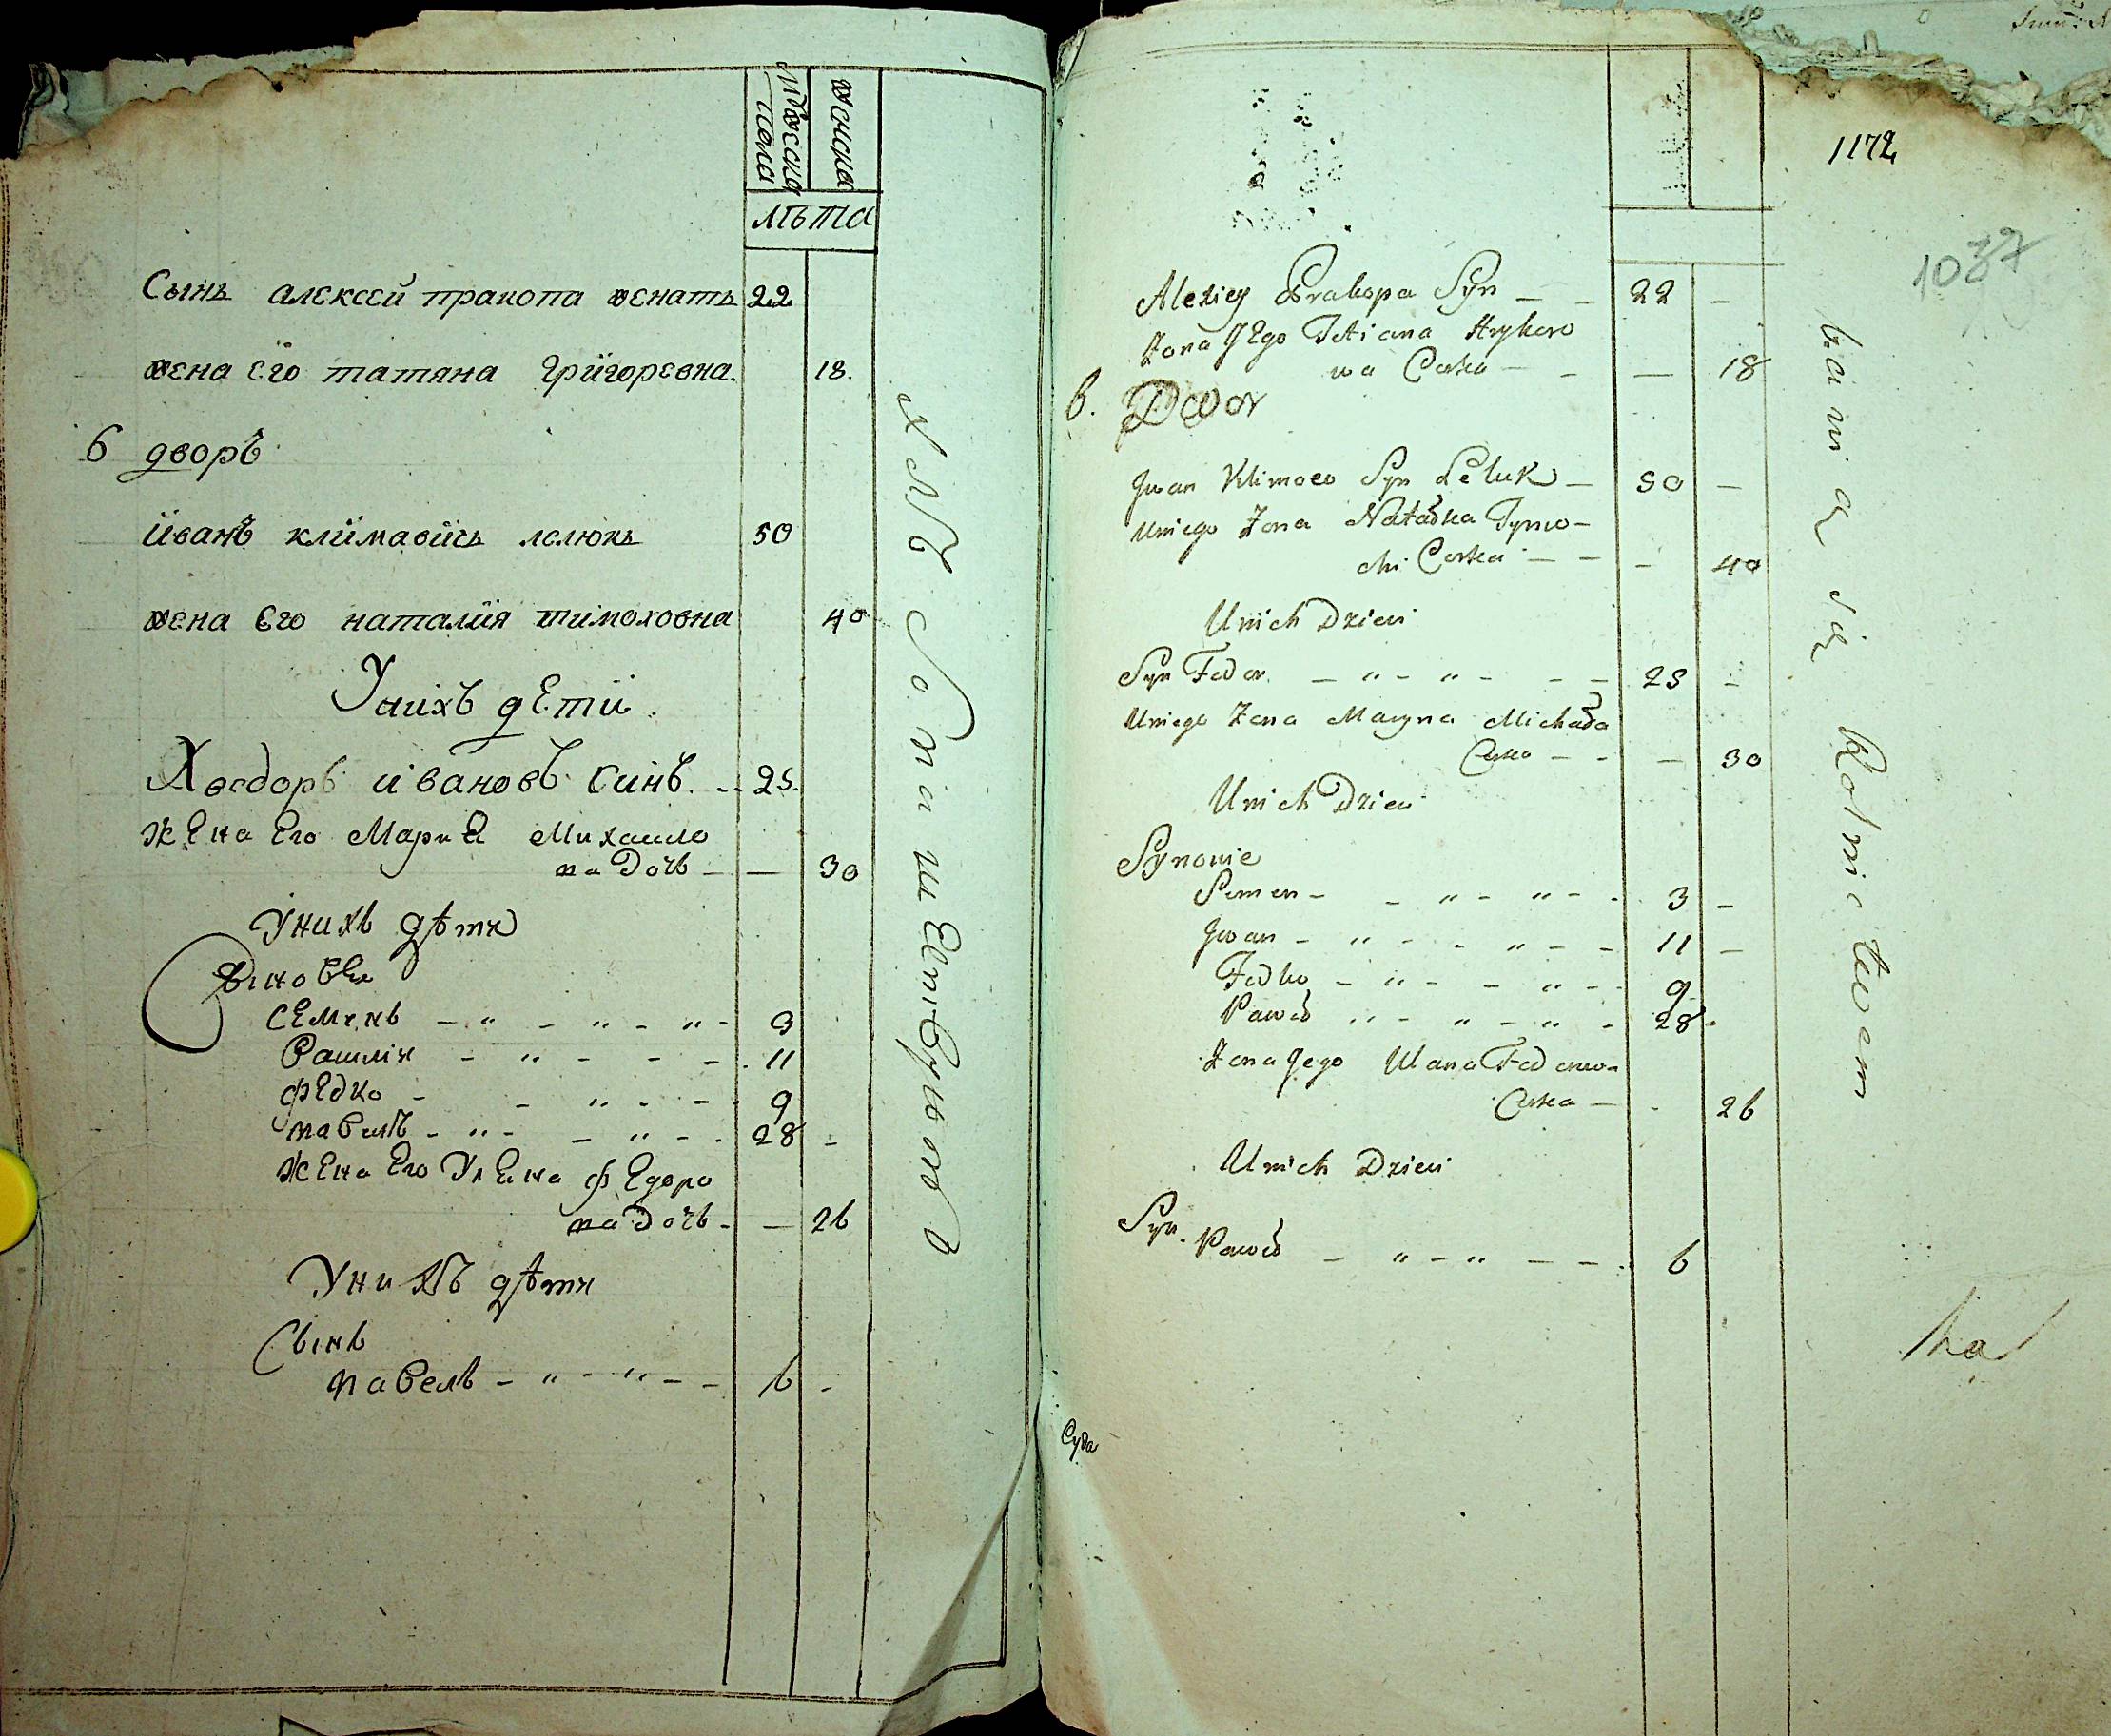 мужеска пола
женска
лѣта
Сынъ алексей пракопа женатъ 22
жена его татяна григоревна. 18.
6 дворъ
иванъ климавичъ лелюкъ 50
жена его наталия тимоховна 40
У нихъ дети
Хведоръ ивановъ синъ. - - 25.
жена Его Мариа Михаило
ва дочь - — 30
У нихъ дѣти
Сыновѣя
СЕменъ - „ - „ - „ - 3
11
фЕдко - - „ - - 9
павелъ - „ - - „ - - 28 -
жЕна Его УлЕна фЕдоро
ва дочь - — 26
У нихъ дѣти
Сынъ
павелъ - „ - „ - - 6 -
1172
1037
Alexiey Prakopa Syn - - 22 -
Zona Jego Tatiana Hryhoro
wa Corka - - — 18
6. Dwor
Jwan Klimow Syn Leluk - 50 -
Uniego Zona Natalka Tymo-
chi Corka - - - 40
Unich Dzieci
Syn Fedor - „ - „ - - - 25 -
Uniego Zona Maryna Michała
Corka - - — 30
Unich Dzieci
Synowie
Semen - - „ - „ - - 3 -
Jwan - „ - - „ - - 11 -
Fedko - „ - - „ - - 9
Paweł „ - „ - „ - 28 -
Zona Jego Ulana Fedorowa
Corka - - 26
Unich Dzieci
Syn.
Paweł - „ - „ - - 6
Суда